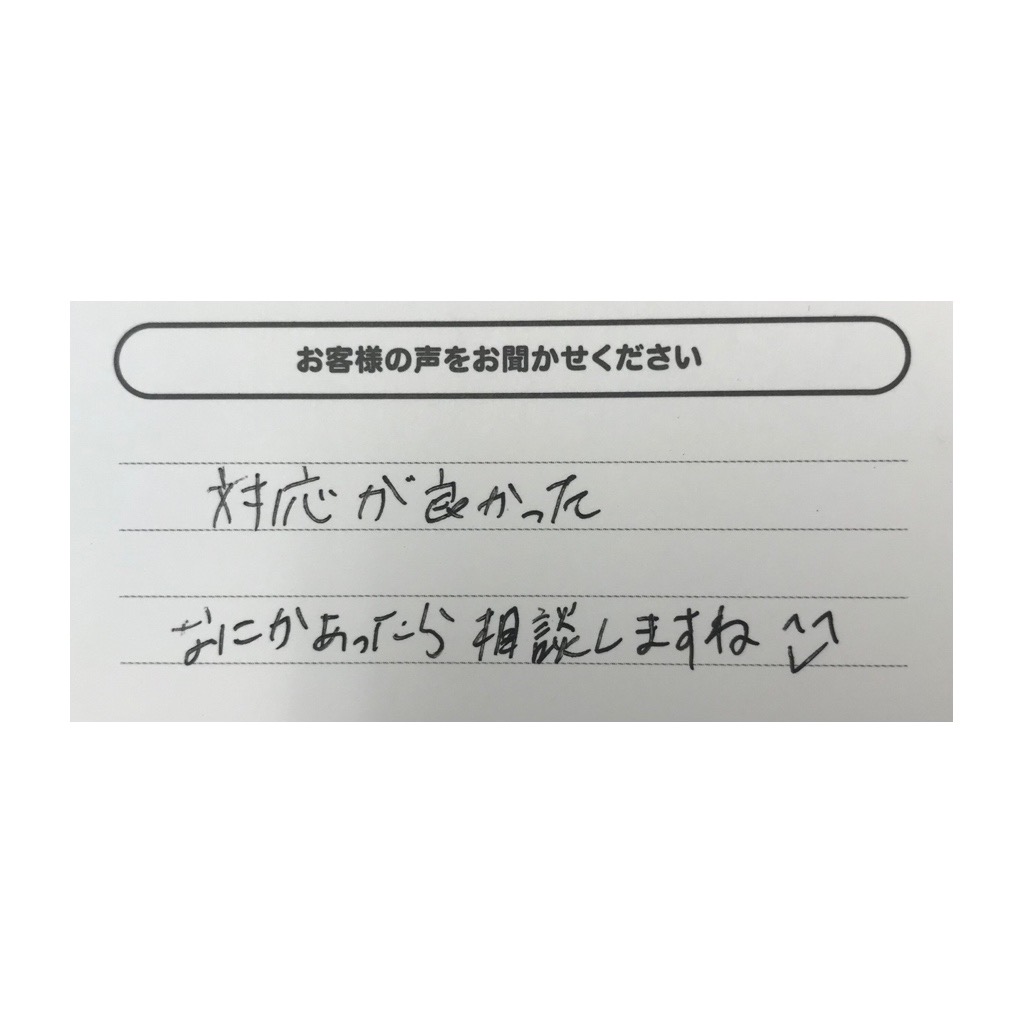 お客様の声をお聞かせください
対応が良かった
なにかあったら相談しますね